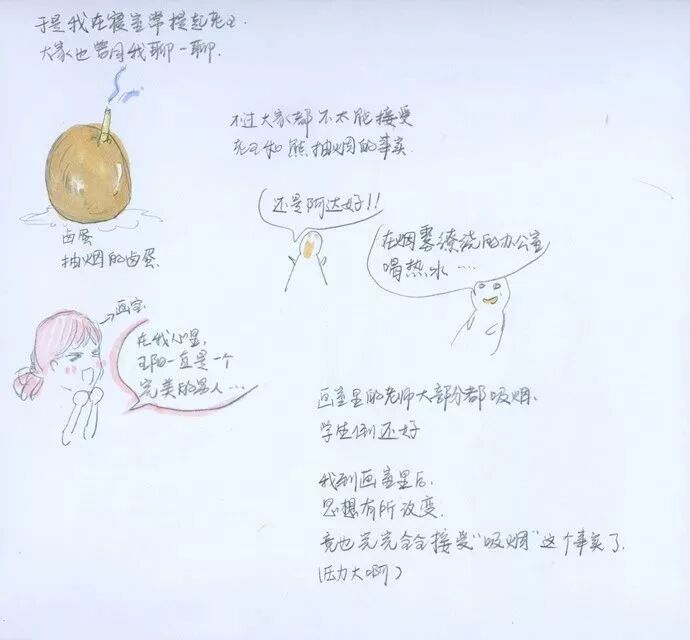 于是我在寝室常提起老王.
大家也曾同我聊一聊.
不过大家都不太能接受
老王和熊抽烟的事实.
卤蛋
抽烟的卤蛋.
还是阿达好!!
在烟雾缭绕的办公室
喝热水…
→画室
在我心里,
王阳一直是一个
完美的男人…
画室里的老师大部分都吸烟.
学生倒还好
我到画室里后.
思想有所改变.
竟也完完全全接受“吸烟”这个事实了.
(压力大啊)